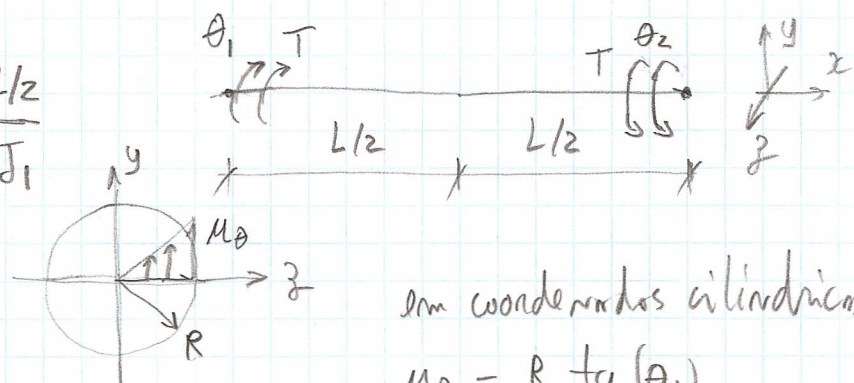 θ₁ T T θ₂ y x
L/2
J₁
L/2 L/2 z
y
μθ
z
R
em coordenadas cilíndricas
μθ = R tg (θ₁)